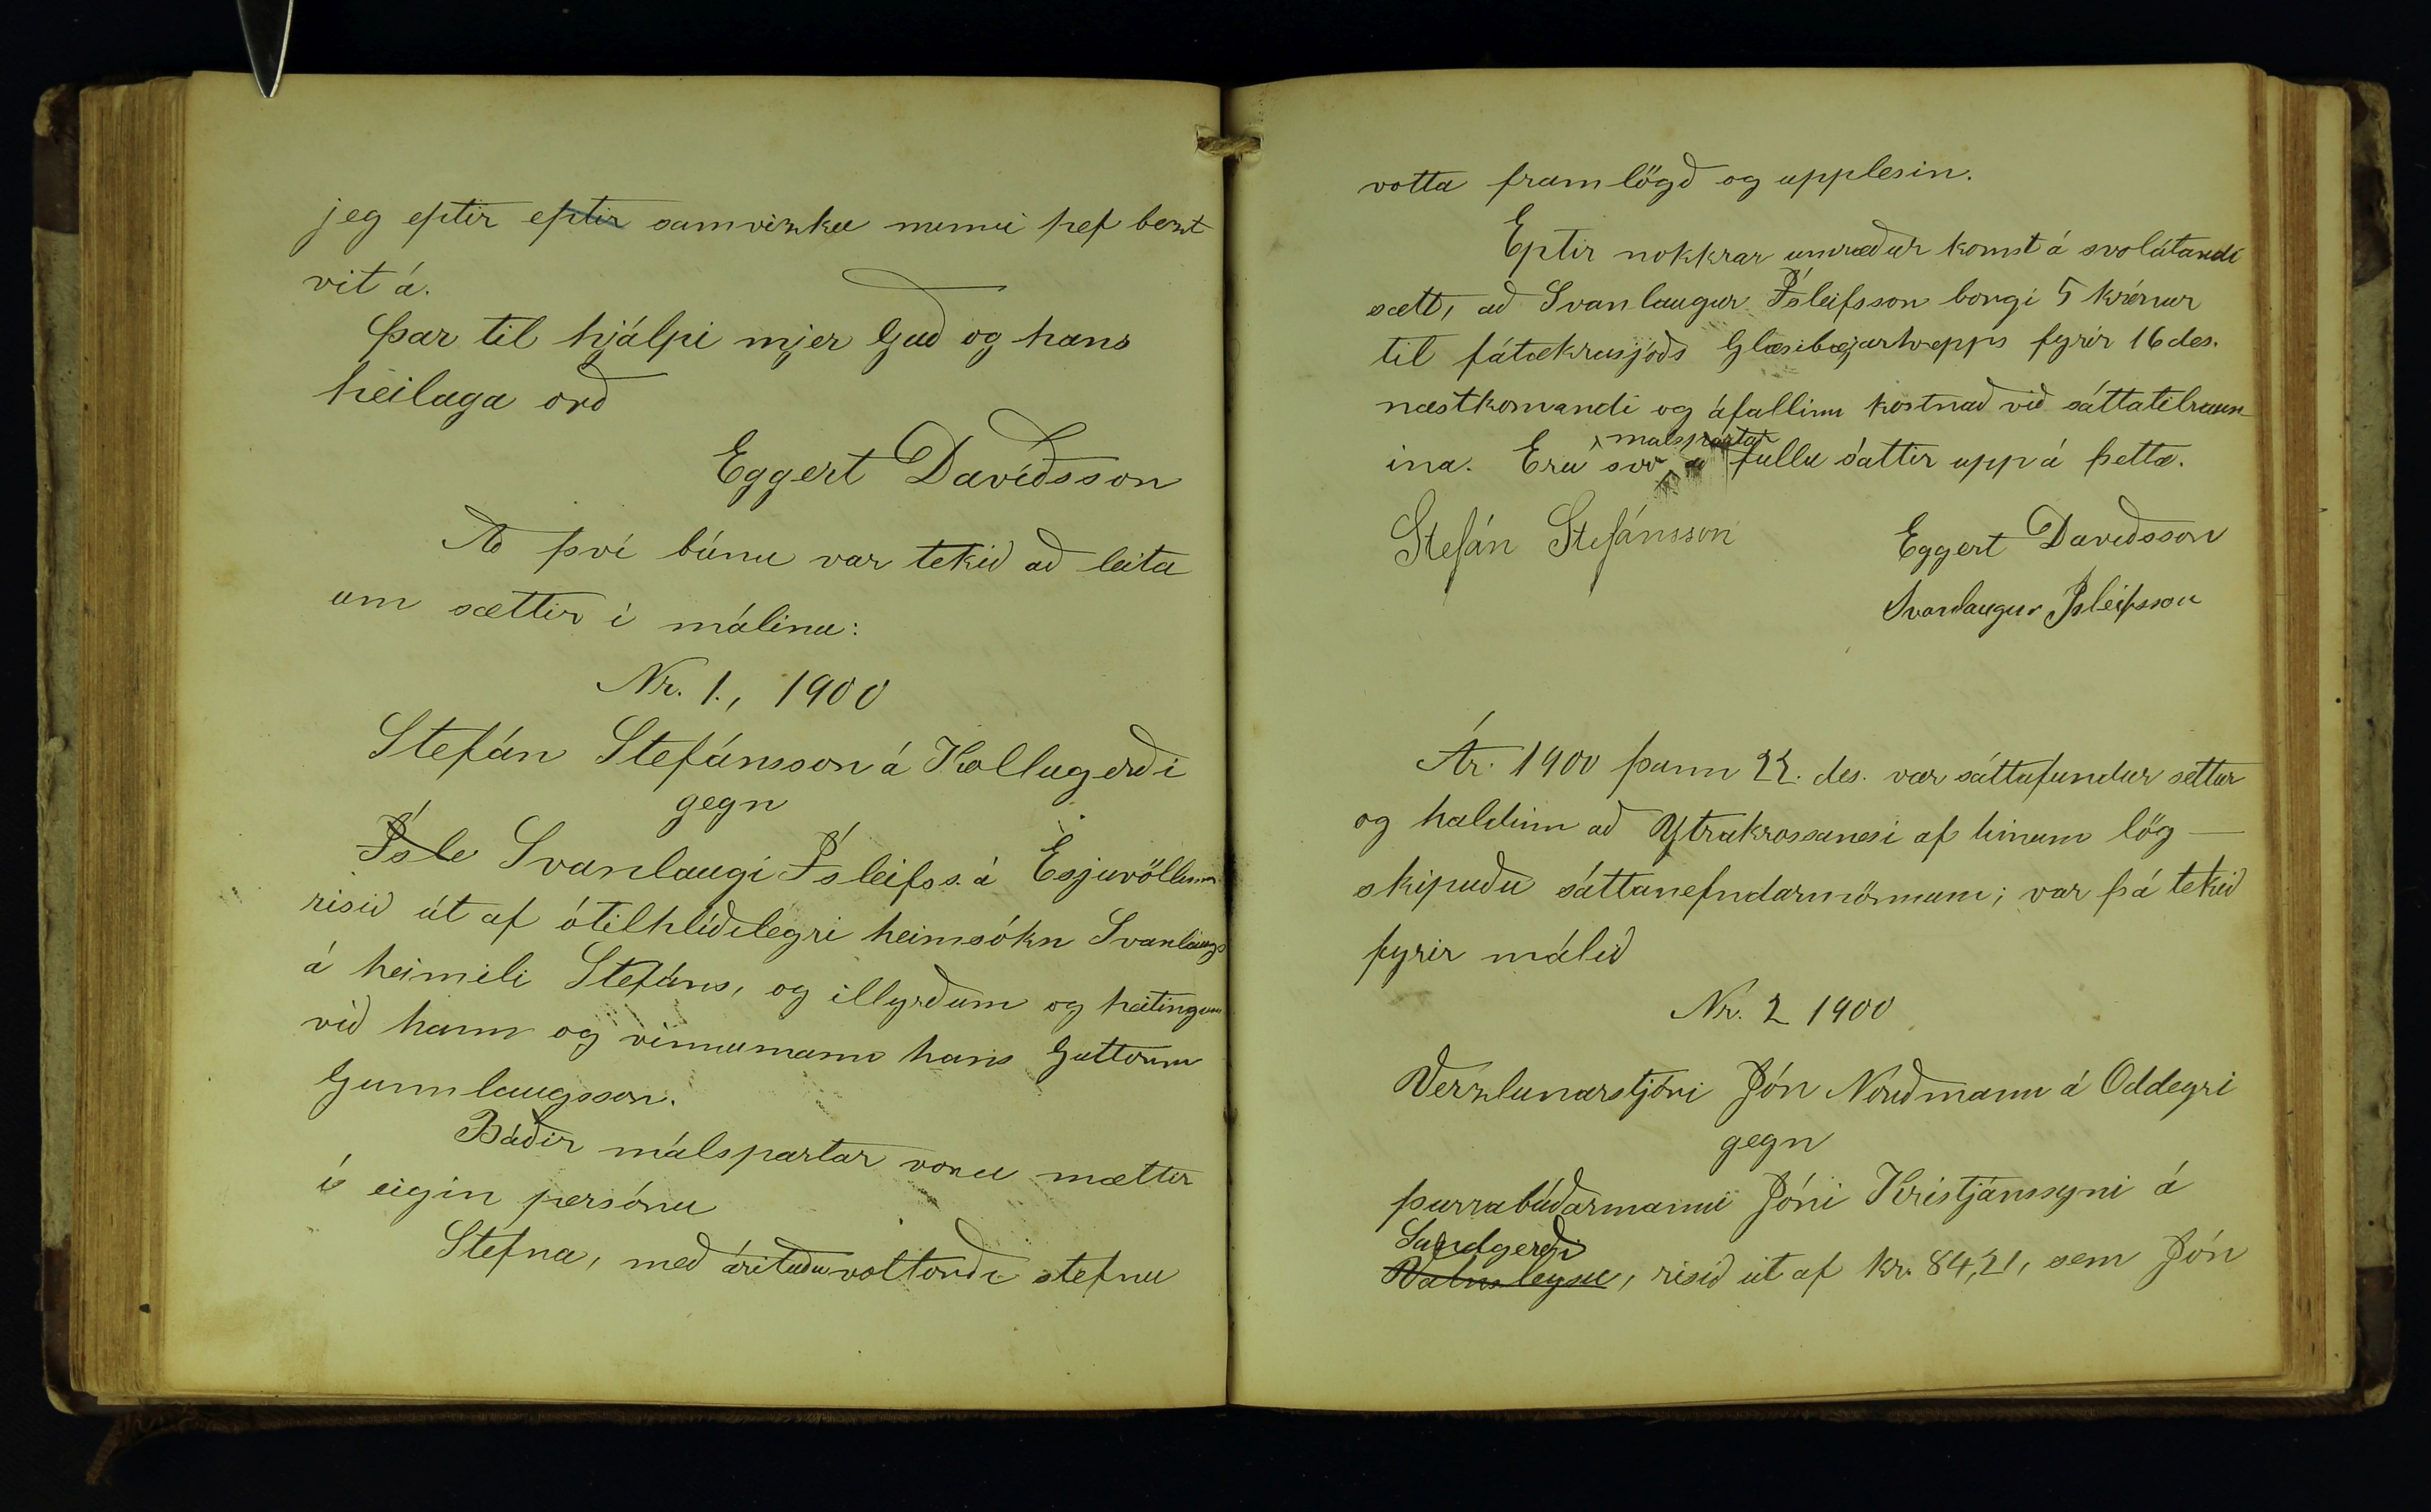 jeg eptir eptir samvizku minni hef bezt
vit á.
Þar til hjálpi mjer Guð og hans
heilaga orð
Eggert Davíðsson
Að því búnu var tekið að leita
um sættir í málinu:
Nr. 1., 1900
Stefán Stefánsson á Kollugerði
gegn
Ísle Svanlaugi Ísleifss. á Esjuvöllum
risið út af ótilhlíðilegri heimsókn Svanlaugs
á heimili Stefáns, og illyrðum og hótingum
við hann og vinnumann hans Guttorm
Gunnlaugsson.
Báðir málspartar voru mættir
í eigin persónu
Stefna, með árituðu vottorði stefnu
votta framlögð og upplesin.
Eptir nokkrar umræður komst á svolátandi
sætt, að Svanlaugur Ísleifsson borgi 5 krónur
til fátækrasjóðs Glæsibæjarhrepps fyrir 16 des.
næstkomandi og áfallinn kostnað við sáttatilraun
ina. Eru málspartar svo að fullu sáttir upp á þetta.
Stefán Stefánsson
Eggert Davíðsson
Svanlaugur Ísleifsson
Ár. 1900 þann 22. des. var sáttafundur settur
og haldinn að Ytrakrossanesi af hinum lög-
skipuðu sáttanefndarmönnum; var þá tekið
fyrir málið
Nr. 2 1900
Verzlunarstjóri Jón Norðmann á Oddeyri
gegn
þurrabúðarmanni Jóni Kristjánssyni á
Sandgerði
Vatnsleysu, risið út af kr. 84,21, sem Jón